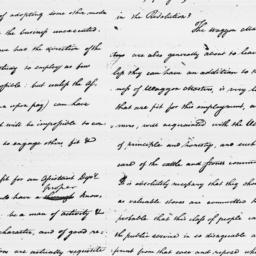 of adopting some other mode
the business unexecuted.
has the direction of the
study to employ as few
possible. but unless the
a repa pay) can have
it will be impossible to con
to engage others, fit &
for an Assistant Depy
to have a proper know
be a man of activity &
character, and of good re
are actually requisite
in the Resolution?
The Waggon Mas
are also generally about to leave
less they can have an addition to th
of Waggon Masters, is very la
that are fit for this employment, a
men, well acquainted with the
of principle and honesty, and such
care of the cattle and
It is absolutely necessary that they sho
as valuable stores are committed t
probable that this class of people in
the public service is so disagreeable a
from that ease and repose wh